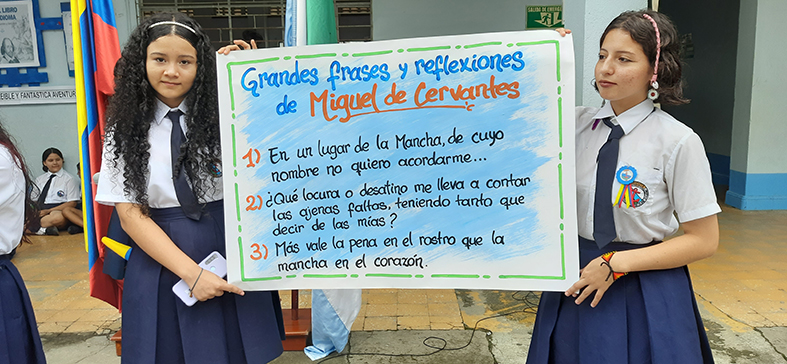 L LIBRO
IDIOMA
EIBLE Y FANTÁSTICA AVENTUR
SALIDA DE EMERGENCIA
Grandes frases y reflexiones
de Miguel de Cervantes
1) En un lugar de la Mancha, de cuyo
nombre no quiero acordarme...
2) ¿Qué locura o desatino me lleva a contar
las ajenas faltas, teniendo tanto que
decir de las mías?
3) Más vale la pena en el rostro que la
mancha en el corazón.